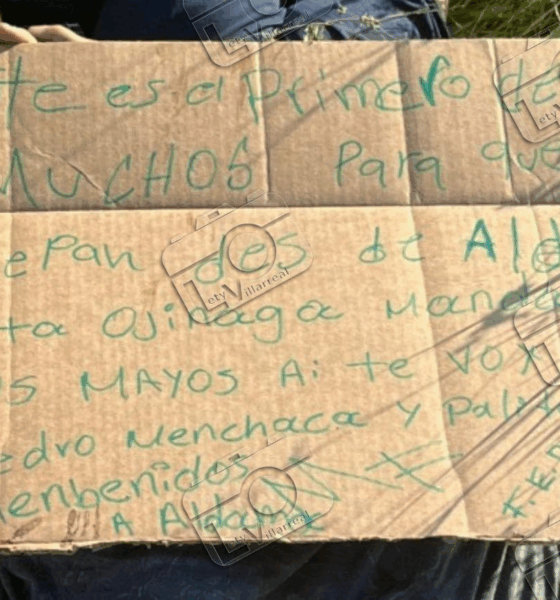 te es el Primero de
MUCHOS Para que
epan des de Alda
ta Ojinaga Manda
s MAYOS Ai te VOY
edro Menchaca y Palu
enbenidos
A Aldama
Lety Villarreal
Lety Villarreal
Lety Villarreal